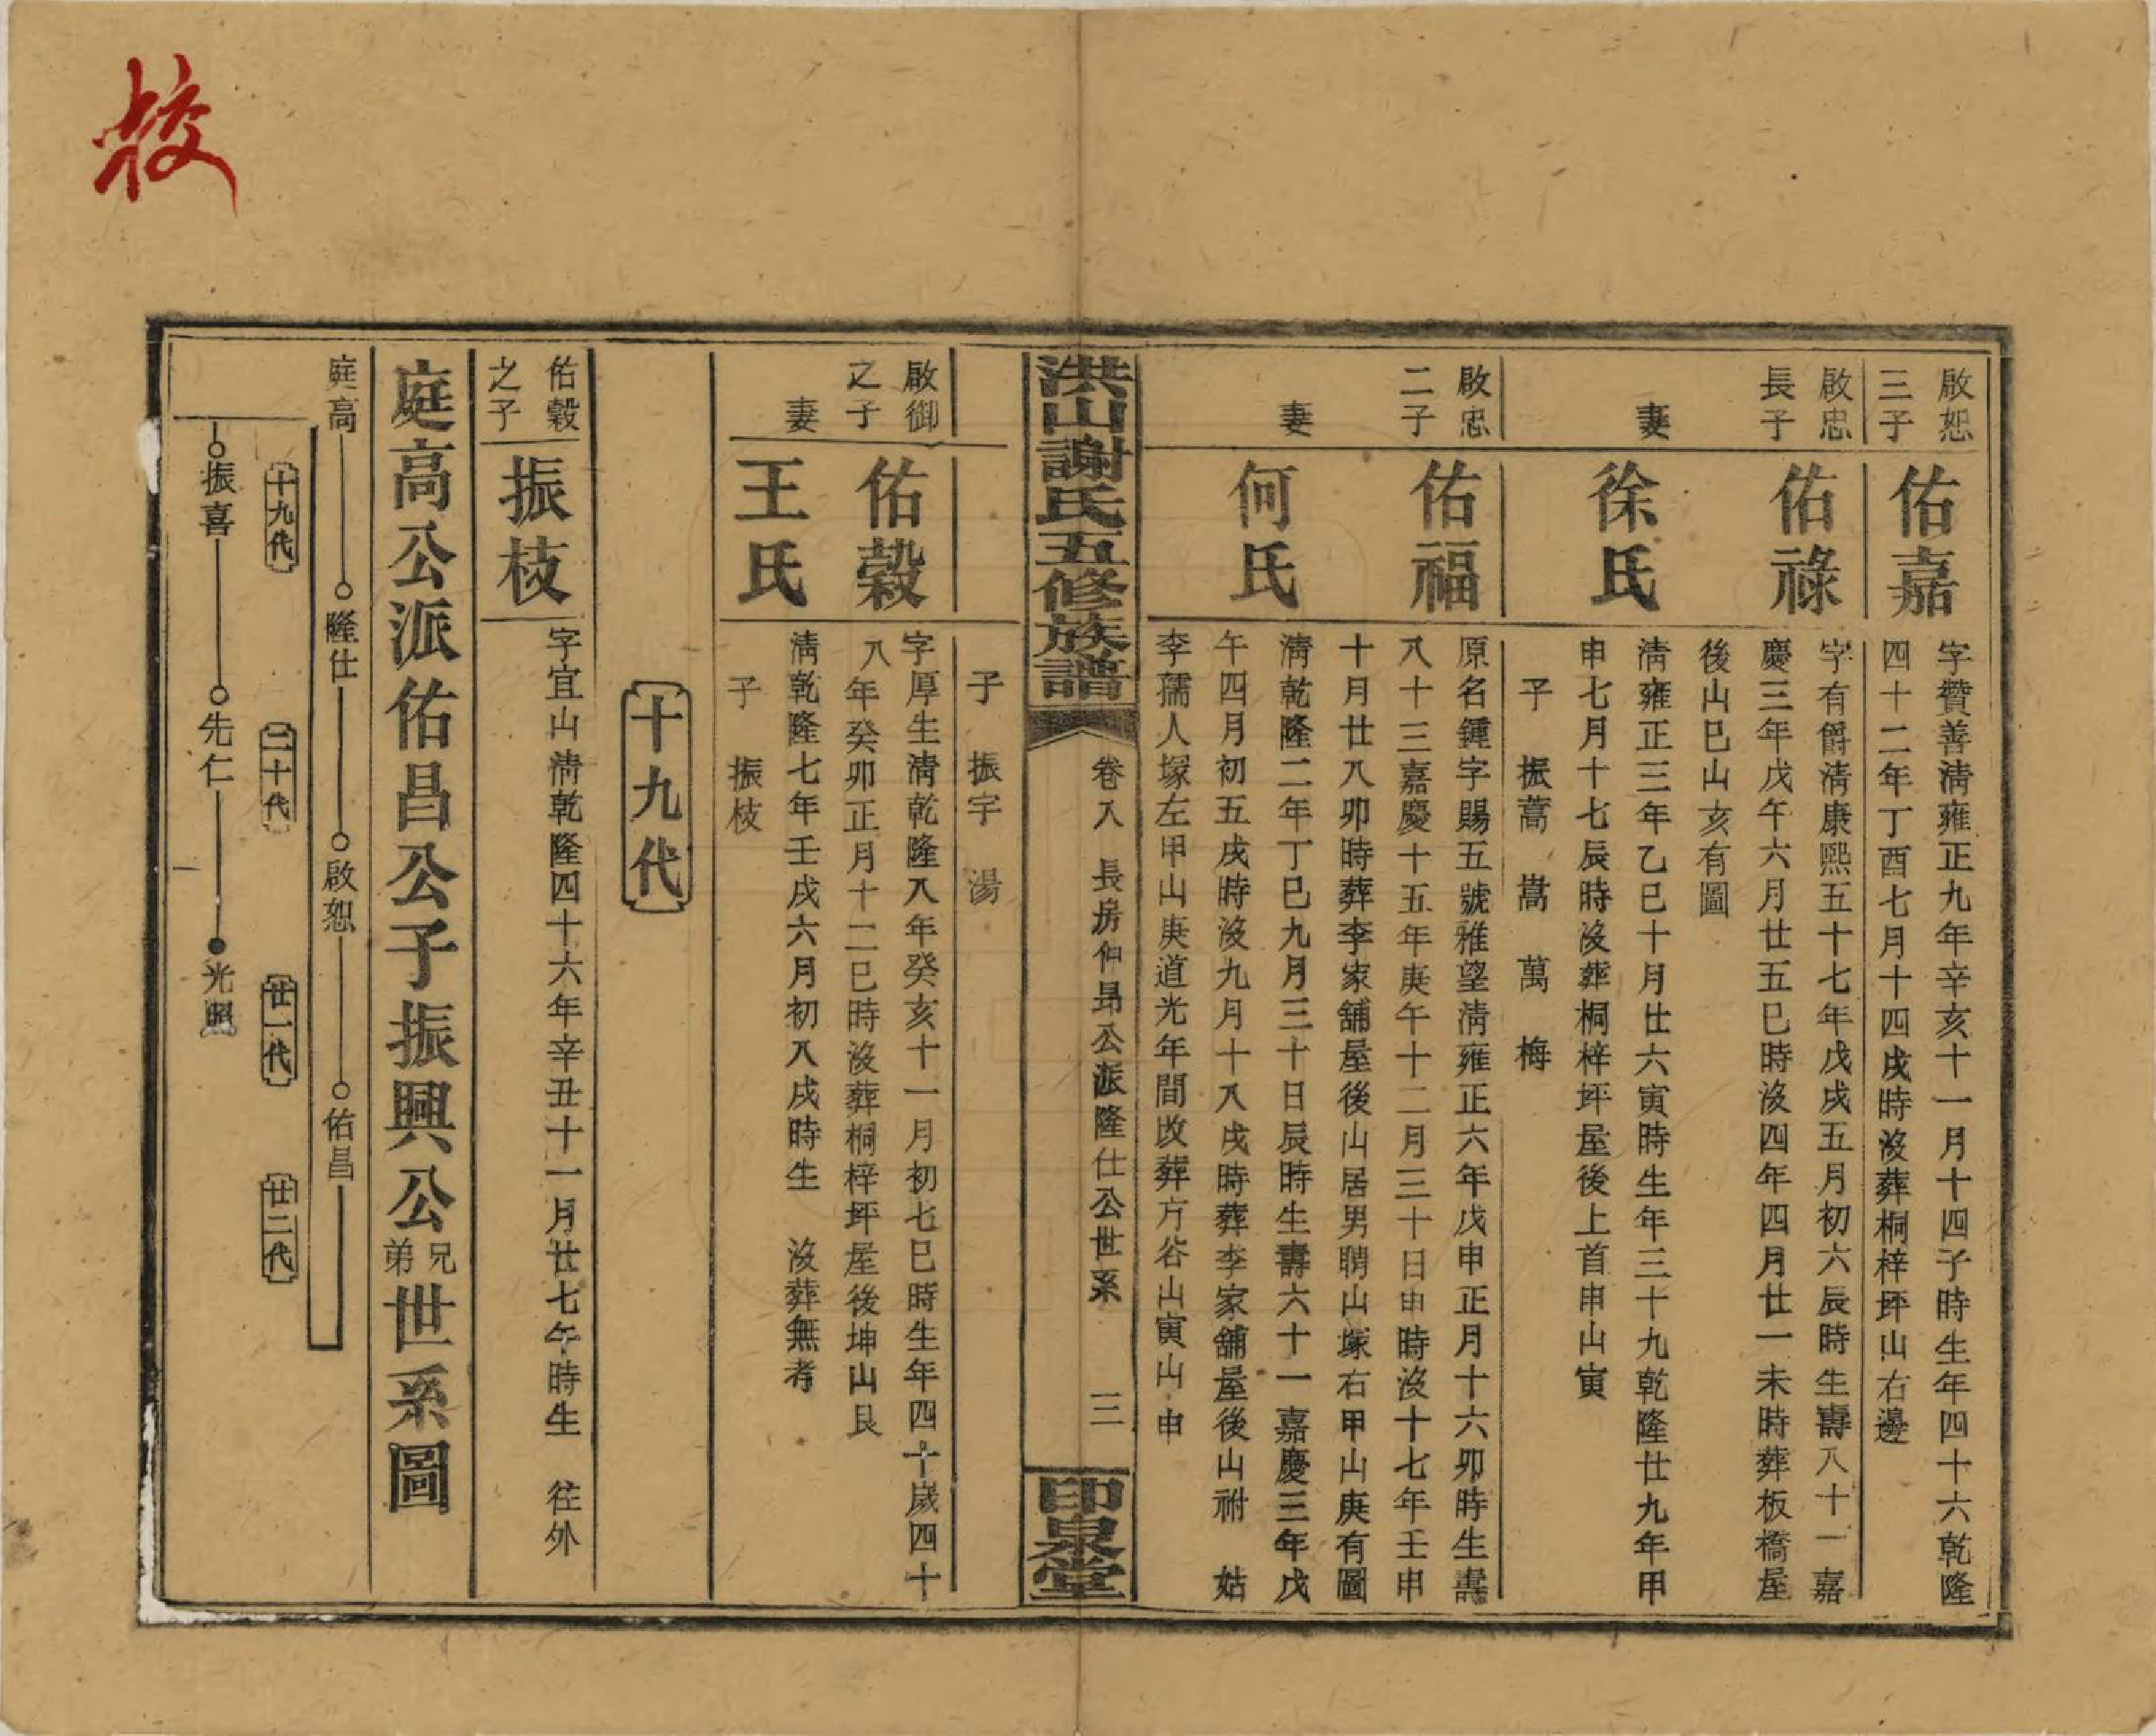 校
啟恕
三子
佑嘉
字贊善淸雍正九年辛亥十一月十四子時生年四十六乾隆
四十二年丁酉七月十四戌時沒葬桐梓坪山右邊
啟忠
長子
佑祿
字有爵淸康熙五十七年戊戌五月初六辰時生壽八十一嘉
慶三年戊午六月廿五巳時沒四年四月廿一未時葬板橋屋
後山巳山亥有圖
妻
徐氏
淸雍正三年乙巳十月廿六寅時生年三十九乾隆廿九年甲
申七月十七辰時沒葬桐梓坪屋後上首申山寅
子 振蒿 嵩 萬 梅
啟忠
二子
佑福
原名鍾字賜五號雅望淸雍正六年戊申正月十六卯時生壽
八十三嘉慶十五年庚午十二月三十日申時沒十七年壬申
十月廿八卯時葬李家舖屋後山居男聘山塚右甲山庚有圖
妻
何氏
淸乾隆二年丁巳九月三十日辰時生壽六十一嘉慶三年戊
午四月初五戌時沒九月十八戌時葬李家舖屋後山祔 姑
李孺人塚左甲山庚道光年間改葬方谷山寅山申
洪山謝氏五修族譜
卷八 長房仲昻公派隆仕公世系 三
印泉堂
子 振宇 湯
啟御
之子
佑穀
字厚生淸乾隆八年癸亥十一月初七巳時生年四十歲四十
八年癸卯正月十二巳時沒葬桐梓坪屋後坤山艮
妻
王氏
淸乾隆七年壬戌六月初八戌時生 沒葬無考
子 振枝
十九代
佑穀
之子
振枝
字宜山淸乾隆四十六年辛丑十一月廿七午時生 往外
庭高公派佑昌公子振興公兄弟世系圖
庭高 隆仕 啟恕 佑昌
十九代 二十代 廿一代 廿二代
振喜 先仁 光照